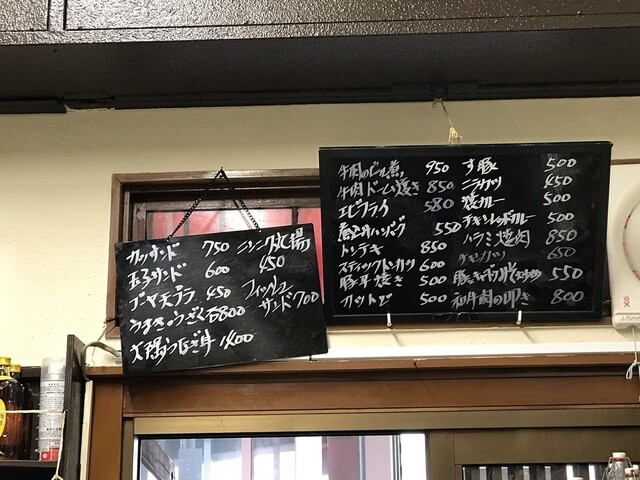 カツサンド 750
玉子サンド 600
ゴーヤ天プラ 450
うまき,うざく 各800
大隅うなぎ丼 1400
ニンニク丸揚
450
フィッシュ
サンド700
牛肉のビール煮, 950
牛肉ドーム焼き 850
エビフライ 580
煮込みハンバーグ 550
トンテキ 850
スティックトンカツ 600
豚平焼き 500
カツトジ 500
す豚 500
ニラカツ 450
焼カレー 500
チキンレッドカレー 500
ハラミ焼肉 850
チキンカツ 650
550
和牛肉の叩き 800